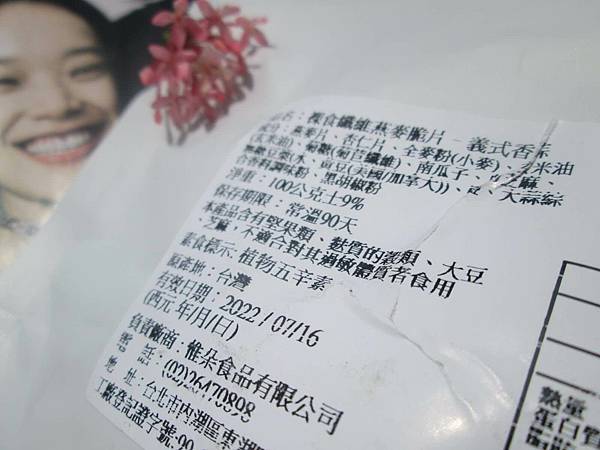 品名：裸食纖維燕麥脆片 - 義式香蒜
成分：燕麥片、杏仁片、全麥粉(小麥)、玄米油
(玄米油)、菊糖(菊苣纖維)、南瓜子、芝麻、
無糖豆漿(水、黃豆(美國/加拿大))、大蒜
香料調味粉、黑胡椒粉
淨重：100公克±9%
保存期限：常溫90天
本產品含有堅果類、麩質的穀類、大豆
、芝麻，不適合對其過敏體質者食用
素食標示: 植物五辛素
原產地：台灣
有效日期：2022/07/16
(西元 年/月/日)
負責廠商：惟朵食品有限公司
電 話：(02)26470898
地 址：台北市內湖區東湖
工廠登記證字號:99
熱量
蛋白質
脂肪